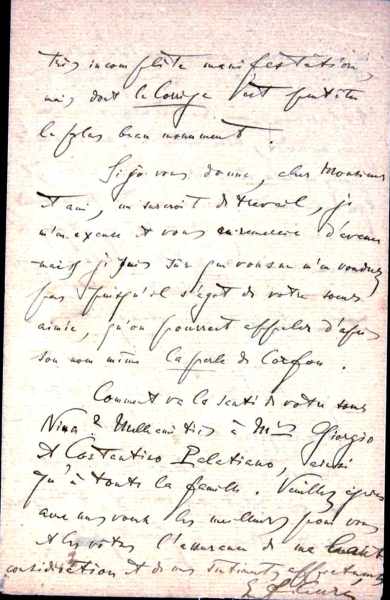 très incomplète manifestation,
mais dont le Corrige est peut être
le plus beau monument.
Si je vous donne, cher Monsieur
et ami, un surcroît de travail, je
m'en excuse et vous en remercie d'avance
mais je suis sûr que vous ne m'en voudrez
pas puisqu'il s'agit de votre soeur
aimée, qu'on pourrait appeler d'après
son nom même la perle de Corfou.
Comment va la santé de votre soeur
Nina? Mille amitiés à Mrs Giorgio
et Costantino Palatiano, ainsi
qu'à toute la famille. Veuillez agréer
avec mes voeux les meilleurs pour vous
et les vôtres l'assurance de ma haute
considération et de mes sentiments affectueux